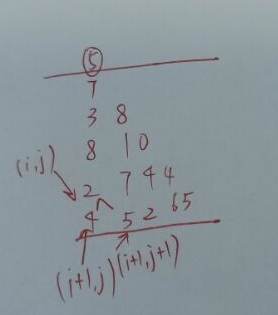 5
7
3 8
8 1 0
(i,j) 2 7 4 4
4 5 2 6 5
(i+1,j) (i+1,j+1)